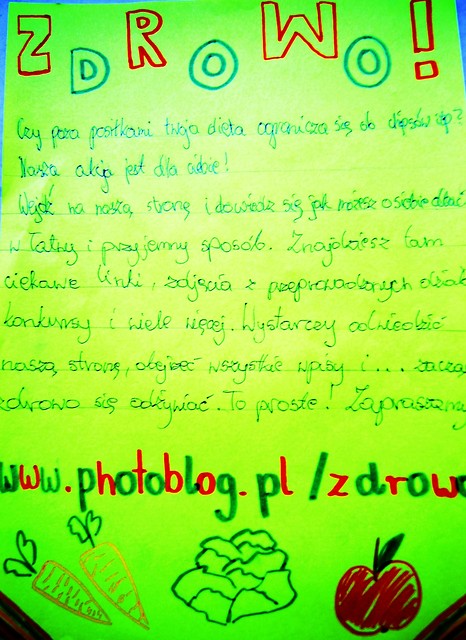 ZDROWO!
Czy poza posiłkami twoja dieta ogranicza się do chipsów itp?
Nasza akcja jest dla ciebie!
Wejdź na naszą stronę i dowiedz się jak możesz o siebie dbać
w łatwy i przyjemny sposób. Znajdziesz tam
ciekawe linki, zdjęcia z przeprowadzonych
konkursy i wiele więcej. Wystarczy odwiedzić
naszą stronę, obejrzeć wszystkie wpisy i ... zacząć
zdrowo się odżywiać. To proste! Zapraszamy
www.photoblog.pl/zdrowo